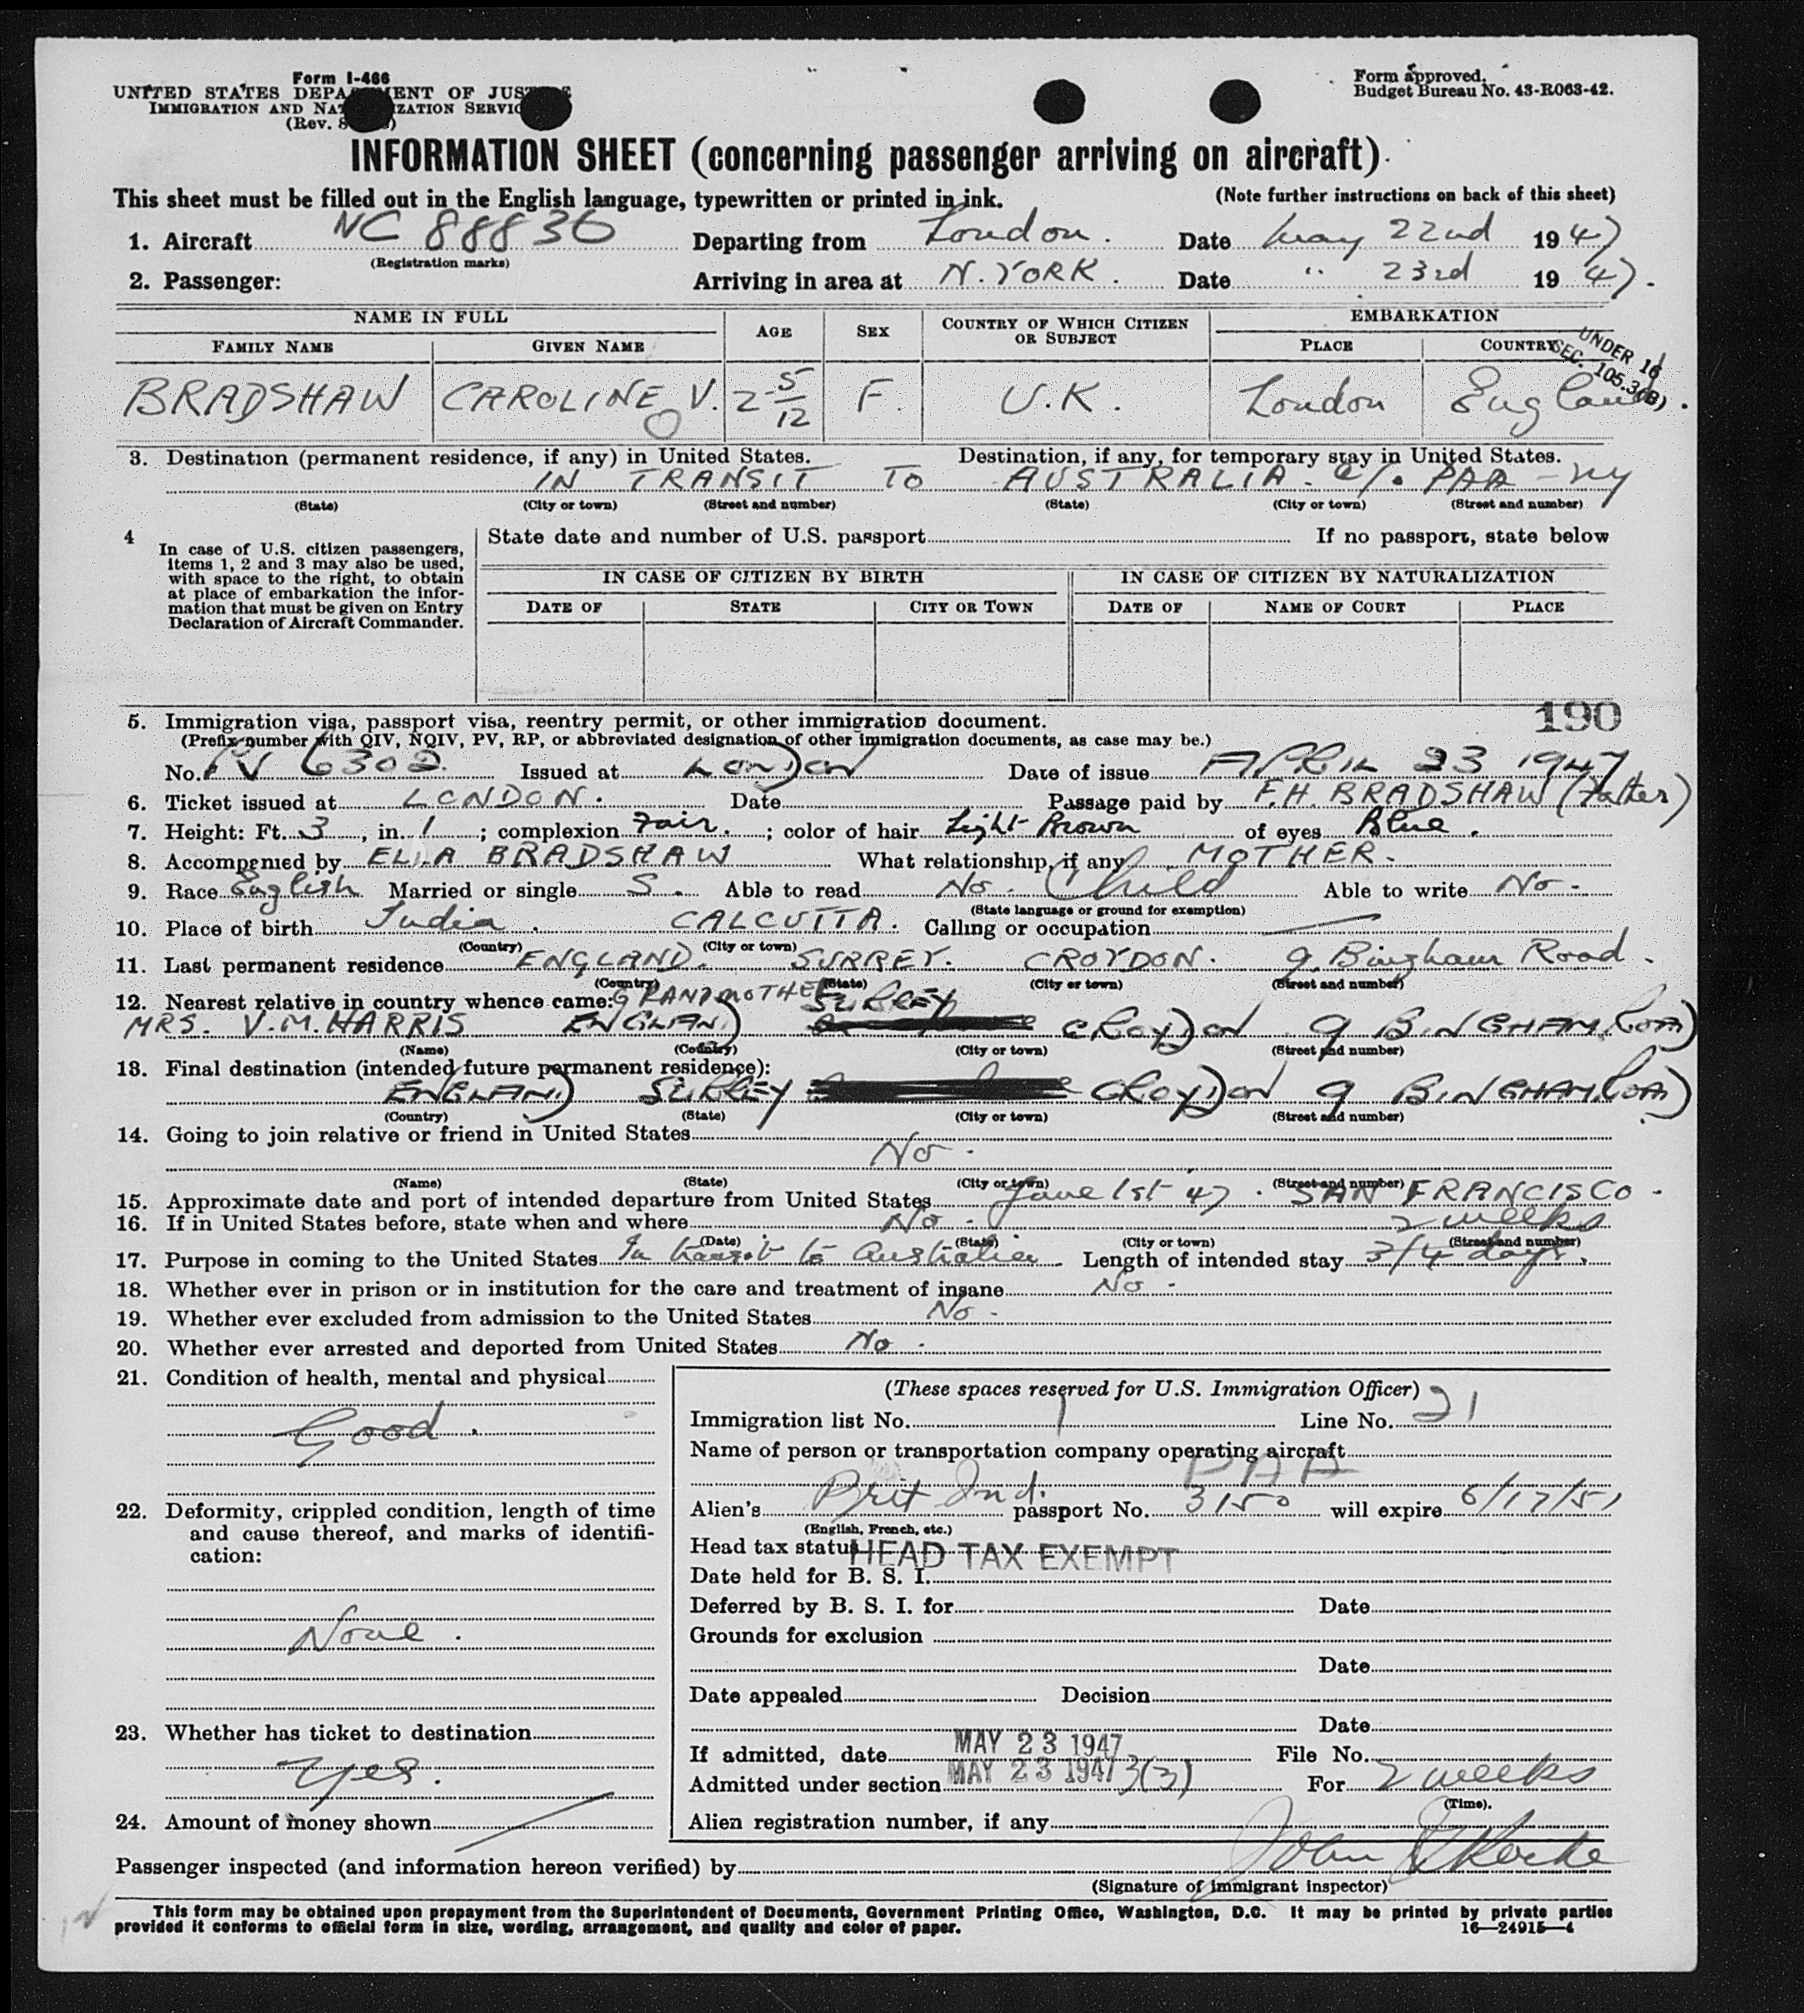 Form I-466
UNITED STATES DEPARTMENT OF JUSTICE
IMMIGRATION AND NATURALIZATION SERVICE
(Rev. 8
Form approved.
Budget Bureau No. 43-R063-42.
INFORMATION SHEET (concerning passenger arriving on aircraft)
This sheet must be filled out in the English language, typewritten or printed in ink. (Note further instructions on back of this sheet)
1. Aircraft NC 88836 Departing from London. Date May 22nd 1947
(Registration marks)
2. Passenger: Arriving in area at N. YORK. Date " 23rd 1947.
NAME IN FULL AGE SEX COUNTRY OF WHICH CITIZEN OR SUBJECT EMBARKATION
FAMILY NAME GIVEN NAME PLACE COUNTRY
UNDER 16
SEC. 105.3(B)
BRADSHAW CAROLINE V. 2 5/12 F. U.K. London England.
3. Destination (permanent residence, if any) in United States. Destination, if any, for temporary stay in United States.
IN TRANSIT TO AUSTRALIA. c/. PAA - NY
(State) (City or town) (Street and number) (State) (City or town) (Street and number)
4 In case of U.S. citizen passengers, items 1, 2 and 3 may also be used, with space to the right, to obtain at place of embarkation the information that must be given on Entry Declaration of Aircraft Commander.
State date and number of U.S. passport If no passport, state below
IN CASE OF CITIZEN BY BIRTH IN CASE OF CITIZEN BY NATURALIZATION
DATE OF STATE CITY OR TOWN DATE OF NAME OF COURT PLACE
190
5. Immigration visa, passport visa, reentry permit, or other immigration document.
(Prefix number with QIV, NQIV, PV, RP, or abbreviated designation of other immigration documents, as case may be.)
No. PV 6302 Issued at LONDON Date of issue APRIL 23 1947
6. Ticket issued at LONDON. Date Passage paid by F.H. BRADSHAW (Father)
7. Height: Ft. 3, in. 1; complexion Fair.; color of hair Light Brown of eyes Blue.
8. Accompanied by ELLA BRADSHAW What relationship, if any MOTHER.
9. Race English Married or single S. Able to read No. Child Able to write No.
(State language or ground for exemption)
10. Place of birth India. CALCUTTA. Calling or occupation —
(Country) (City or town)
11. Last permanent residence ENGLAND. SURREY. CROYDON. 9. Bingham Road.
(Country) (State) (City or town) (Street and number)
12. Nearest relative in country whence came: GRANDMOTHER SURREY
MRS. V.M. HARRIS ENGLAND CROYDON 9 BINGHAM ROAD
(Name) (Country) (City or town) (Street and number)
13. Final destination (intended future permanent residence):
ENGLAND SURREY CROYDON 9 BINGHAM ROAD.
(Country) (State) (City or town) (Street and number)
14. Going to join relative or friend in United States
No.
(Name) (State) (City or town) (Street and number)
15. Approximate date and port of intended departure from United States June 1st 47. SAN FRANCISCO.
16. If in United States before, state when and where No. 2 weeks
(Date) (State) (City or town) (Street and number)
17. Purpose in coming to the United States In transit to Australia. Length of intended stay 3/4 days.
18. Whether ever in prison or in institution for the care and treatment of insane No.
19. Whether ever excluded from admission to the United States No.
20. Whether ever arrested and deported from United States No.
21. Condition of health, mental and physical
Good.
22. Deformity, crippled condition, length of time and cause thereof, and marks of identification:
None.
23. Whether has ticket to destination
Yes.
24. Amount of money shown
(These spaces reserved for U.S. Immigration Officer)
Immigration list No. 1 Line No. 21
Name of person or transportation company operating aircraft
PAA
Alien's Brit Ind. passport No. 3150 will expire 6/17/51
(English, French, etc.)
Head tax status HEAD TAX EXEMPT
Date held for B. S. I.
Deferred by B. S. I. for Date
Grounds for exclusion
Date
Date appealed Decision
Date
If admitted, date MAY 23 1947 File No.
Admitted under section MAY 23 1947 3(3) For 2 weeks
(Time).
Alien registration number, if any
Passenger inspected (and information hereon verified) by John
(Signature of immigrant inspector)
This form may be obtained upon prepayment from the Superintendent of Documents, Government Printing Office, Washington, D.C. It may be printed by private parties
provided it conforms to official form in size, wording, arrangement, and quality and color of paper. 16—24915—4